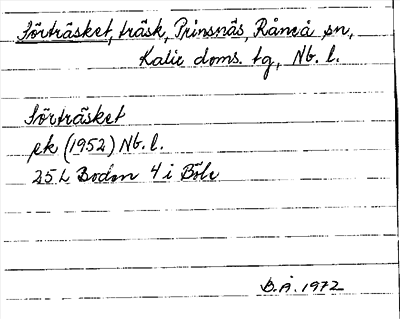 Förträsket, träsk, Prinsnäs, Råneå sn,
Kalix doms. tg, Nb. l.
Förträsket
ek (1952) Nb. l.
25 L Boden 4 i Böle
B.Å. 1972